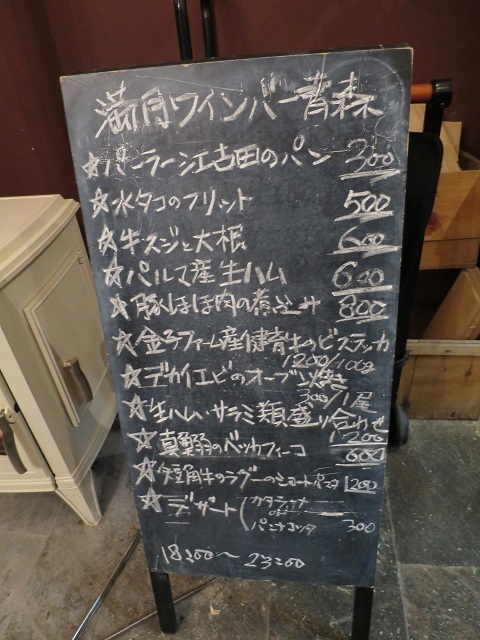 満月ワインバー青森
☆パーラー江古田のパン 300
☆水タコのフリット 500
☆牛スジと大根 600
☆パルマ産生ハム 600
☆豚ほほ肉の煮込み 800
☆金子ファーム産健育牛のビステッカ
1200/100g
☆デカイエビのオーブン焼き
300/1尾
☆生ハム・サラミ類盛り合わせ
1200
☆真鰯のベッカフィーコ 600
☆短角牛のラグーのショートパスタ 1200
☆デザート(カタラィナ
or
パンナコッタ 300
18:00〜23:00